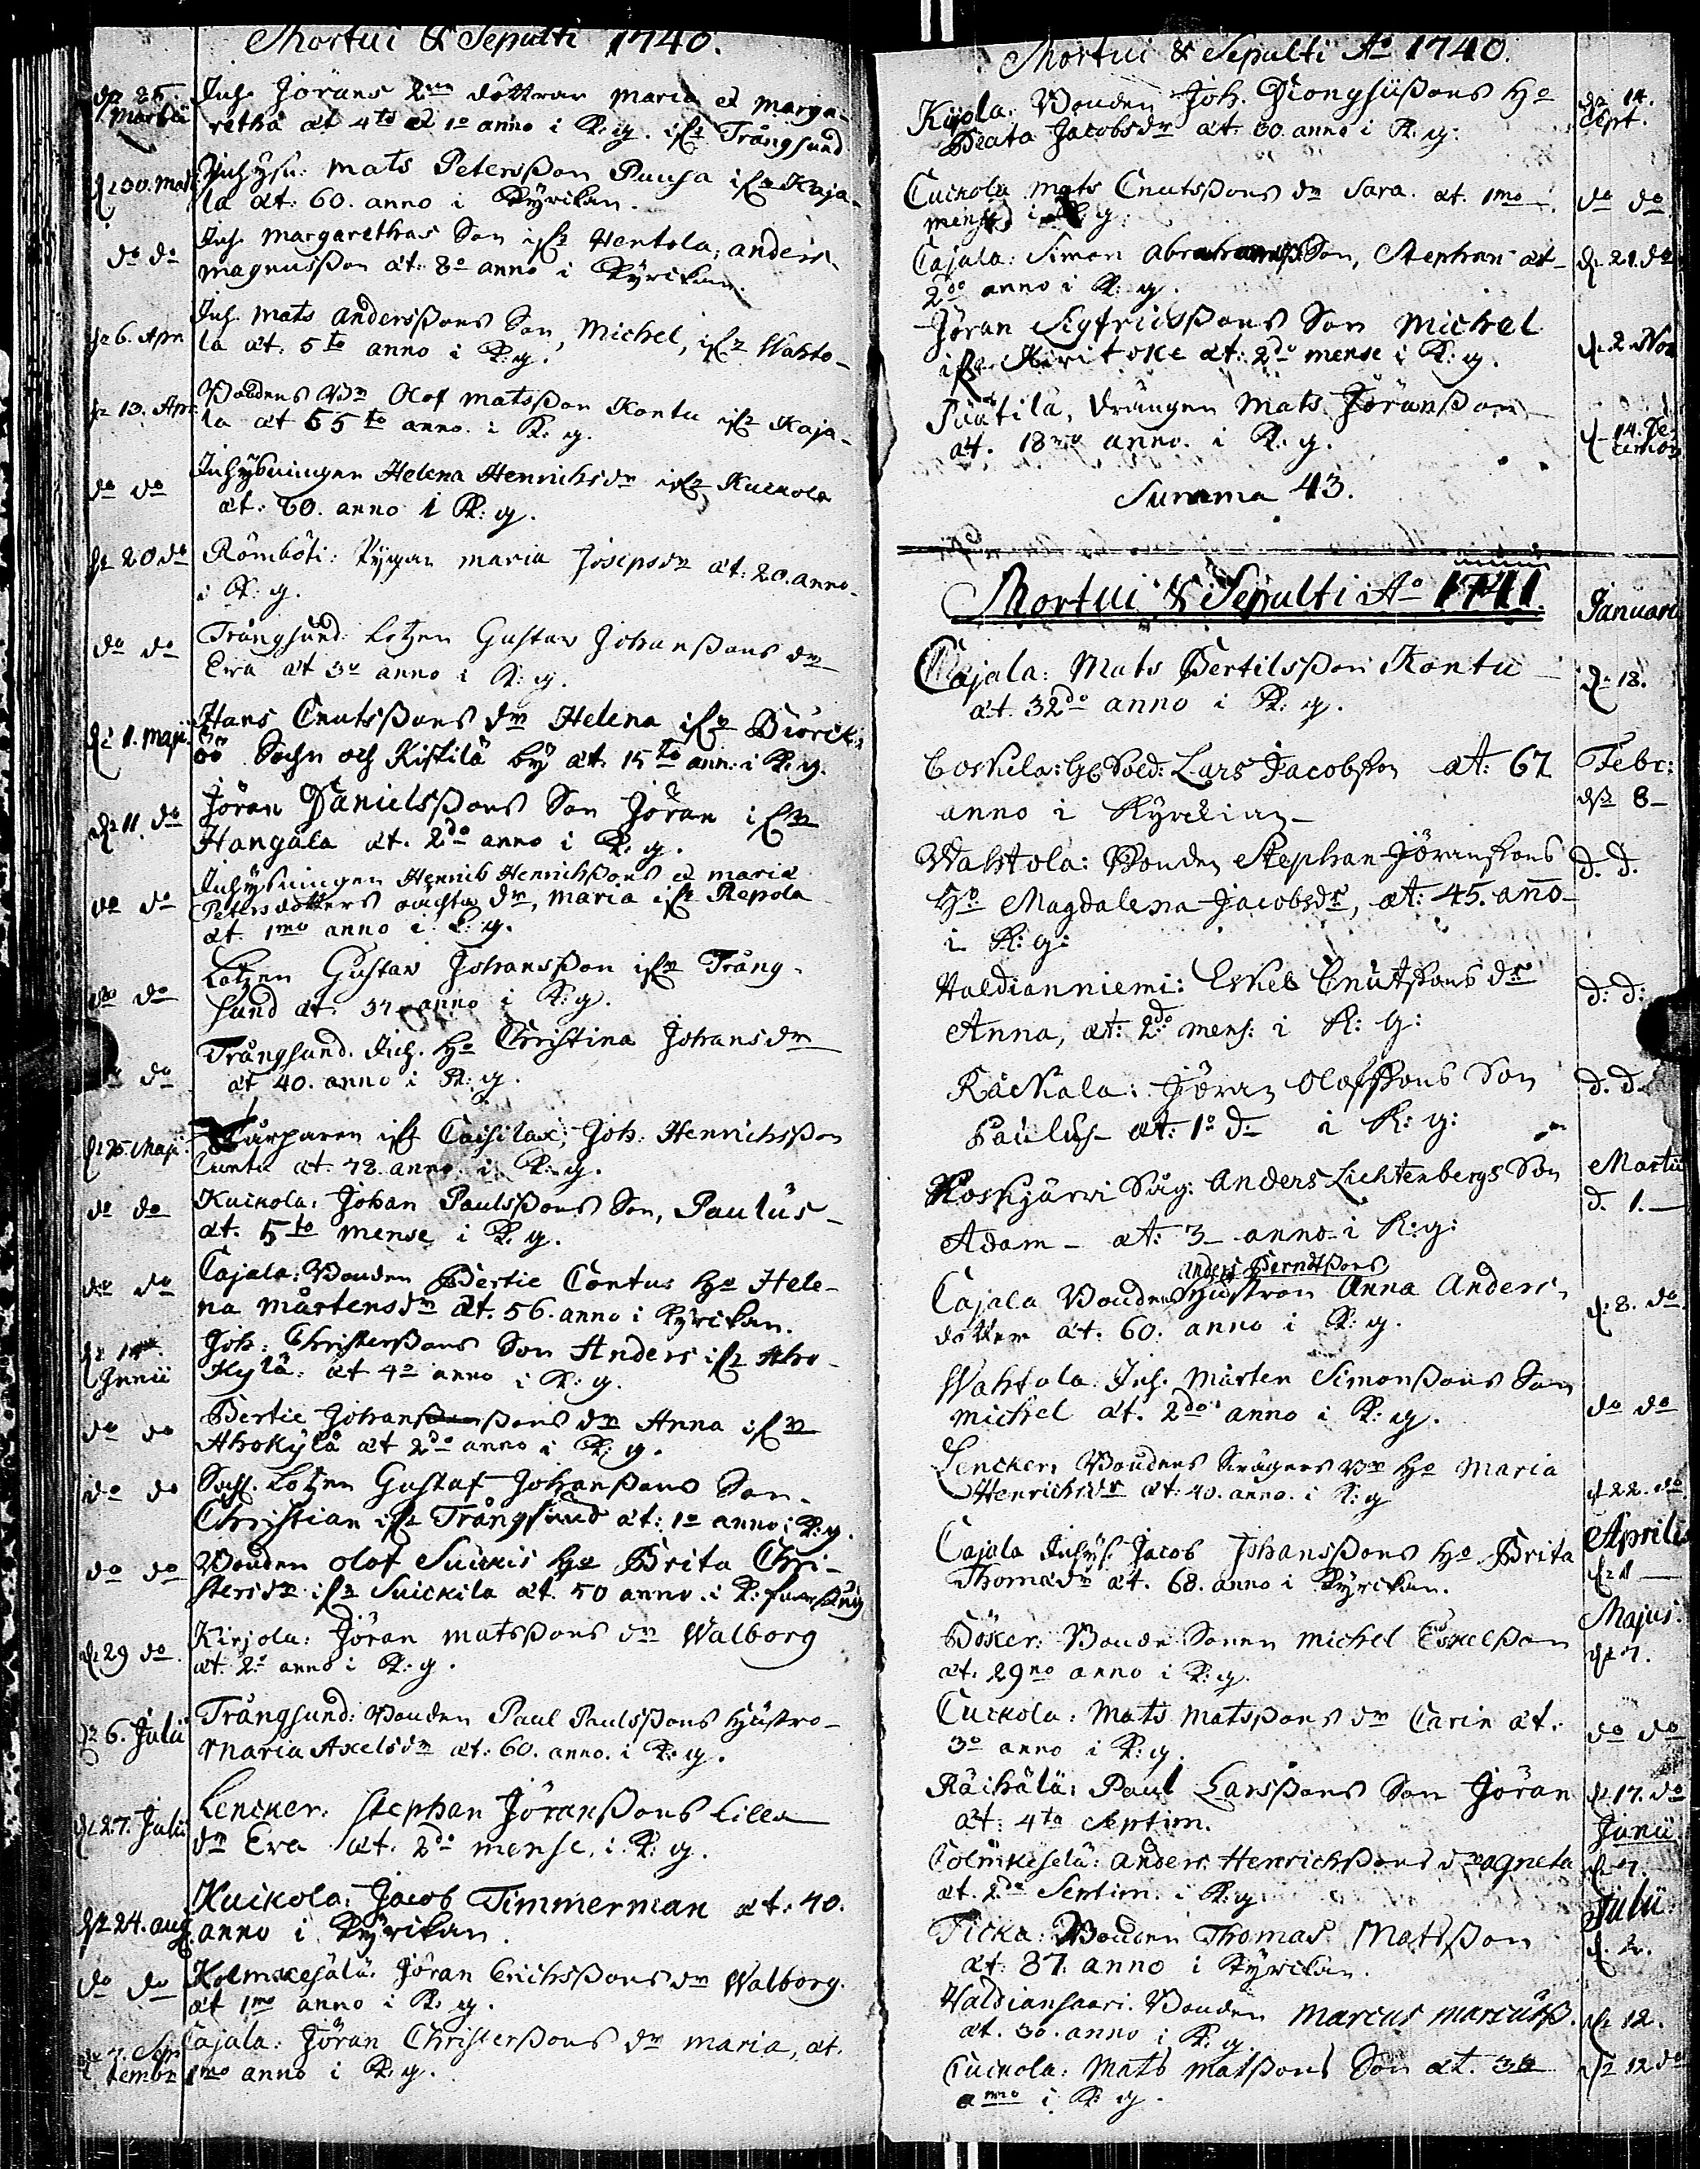 Mortui & Sepulti 1740.
dn 25 Martii
Inh. Jörans 2ne döttrar Maria et Marga-
retha æt 4to et 1o anno i K: g. ifrn Trångsund
dn 30. Mart
Inhysn: Mats Petersson Pausa ifrn Kaja-
la æt: 60. anno i Kyrckan.
do do
Inh. Margarethas Son ifrn Hentola, Anders
Magnusson æt: 8o anno i Kyrckan.
dn 6. Apr
Inh. Mats Anderssons Son, Michel, ifrn Wahto-
la æt: 5to anno i K: g.
dn 13. Apr
Bondens Olof Matsson Kontu ifrn Kaja-
la æt 55to anno. i K: g.
do do
Inhysningen Helena Henrichsdr ifrn Kuckola
æt: 60. anno i K: g.
dn 20 do
Römböti: Pygan Maria Josepsdr æt: 20. anno
i K: g.
do do
Trångsund: Lotzen Gustav Johanssons dr
Eva æt 3o anno i K: g.
dn 1. Maji
Hans Cnutssons dr Helena ifrn Biörck-
öö Sochn och Kistilä by æt. 15to ann: i K: g.
dn 11. do
Jöran Danielssons Son Jöran ifrn
Hangala æt. 2do anno i K: g.
do do
Inhysningen Henric Henrichssons et Maria
Petersdotters oächta dr, Maria ifrn Repola
æt. 1mo anno i K: g.
do do
Lotzen Gustav Johansson ifrn Trång-
sund æt. 37 anno i K: g.
do
Trångsund. Inh. Ho Christina Johansdr
æt 40. anno i K: g.
dn 25. Maji
ifrn Caisilax, Joh: Henrichsson
Cuntu æt. 72. anno. i K: g.
do do
Kuckola: Johan Paulssons Son, Paulus
æt. 5to mense i K: g.
do do
Cajala: Bonden Bertic Contus Ho Hele-
na Mårtensdr æt. 56. anno i Kyrckan.
dn Junii
Joh: Christerssons Son Anders ifrn Aho-
Kylä: æt 4o anno i K: g.
do do
Bertie Johanssons dr Anna ifrn
Ahokylä æt 2do anno i K: g.
do do
Sahl. Lotzen Gustaf Johanssons Son
Christian ifrn Trångsund æt: 1o anno i K: g.
do do
Bonden Olof Suickis Ho Brita Chri-
stersdr ifrn Suickila æt. 50 anno. i K:
dn 29 do
Kirjola: Jöran Matssons dr Walborg
æt. 2o anno i K: g.
dn 6. Julii
Trångsund: Bonden Paul Paulssons Hustro
Maria Axelsdr æt. 60. anno. i K: g.
dn 27. Julii
Lencker: Stephan Jöranssons Lilla
dr Eva æt. 2do mense, i K: g.
dn 24. aug
Kuckola: Jacob Timmerman æt. 40.
anno i Kyrckan.
do do
Kolmikesälä: Jöran Erichssons dr Walborg
æt 1mo anno i K: g.
dn 7. September
Cajala: Jöran Christerssons dr Maria, æt.
1mo anno i K: g.
Mortui & Sepulti Ao 1740.
Kirjola: Bonden Joh. Dionysiissons Ho
Beata Jacobsdr æt. 60. anno i K: g:
dn 14. Sept.
Cuckola Mats Cnutssons dr Sara. æt. 1mo
mense i K: g:
do do
Cajala: Simon Abrahamss Son, Stephan æt
2do anno i K: g.
dn 21. do
Jöran Sigfridssons Son Michel
ifrn Kiritoke æt: 2do mense i K: g.
d. 2. Nov
Piätila, drängen Mats Jöransson
æt. 18 anno. i K: g.
d. 14. December
Summa 43.
Mortui & Sepulti Ao 1741.
Januari
Cajala: Mats Bertilsson Kontu
æt. 32do anno i K: g.
dn 18.
Coskela: Sold: Lars Jacobsson æt: 67
anno i Kyrckian
Febr:
dn 8
Wahtola: Bonden Stephan Jöranssons
Ho Magdalena Jacobsdr, æt: 45. anno
i K: g:
d. d.
Haldianniemi: Eskel Cnutssons dr
Anna, æt: 2do mens: i K: g:
d: d:
Räckala: Jöran Olofssons Son
Paulus æt: 1o d i K: g:
d. d.
Koskjärwi Såg: Anders Lichtenbergs Son
Adam æt: 3 anno i K: g:
Martii
d. 1.
Anders Berndtssons
Cajala Bonden Hustron Anna Anders
dotter æt. 60. anno i K: g.
dn 8. do
Wahtola Inh. Mårten Simonssons Son
Michel æt. 2do anno i K: g.
do do
Lencker, Bondens Krögers Ho Maria
Henrichsdr æt: 40. anno. i K: g
d. 22. do
Cajala Inhys: Jacob Johanssons Ho Brita
Thomædr æt. 68. anno i Kyrckan.
Aprilis
Böker: Bonde Sonen Michel Eskelsson
æt. 29no anno i K: g.
Majus
dn 7.
Cuckola: Mats Matssons dr Carin æt.
3o anno i K: g.
do do
Räihälä: Paul Larssons Son Jöran
æt: 4ta Septim.
d. 17. do
Colmikeselä: Anders Henrichssons dr Agneta
æt. 2da Septim. i K: g.
Junii
d. 7.
Ticka: Bonden Thomas Matsson
æt. 87. anno i Kyrckan.
Julii
Haldiansaari. Bonden Marcus Marcuss.
æt. 30. anno i K: g
dn 12.
Cuckola: Mats Matssons Son æt. 3
anno i K: g.
dn 12 do